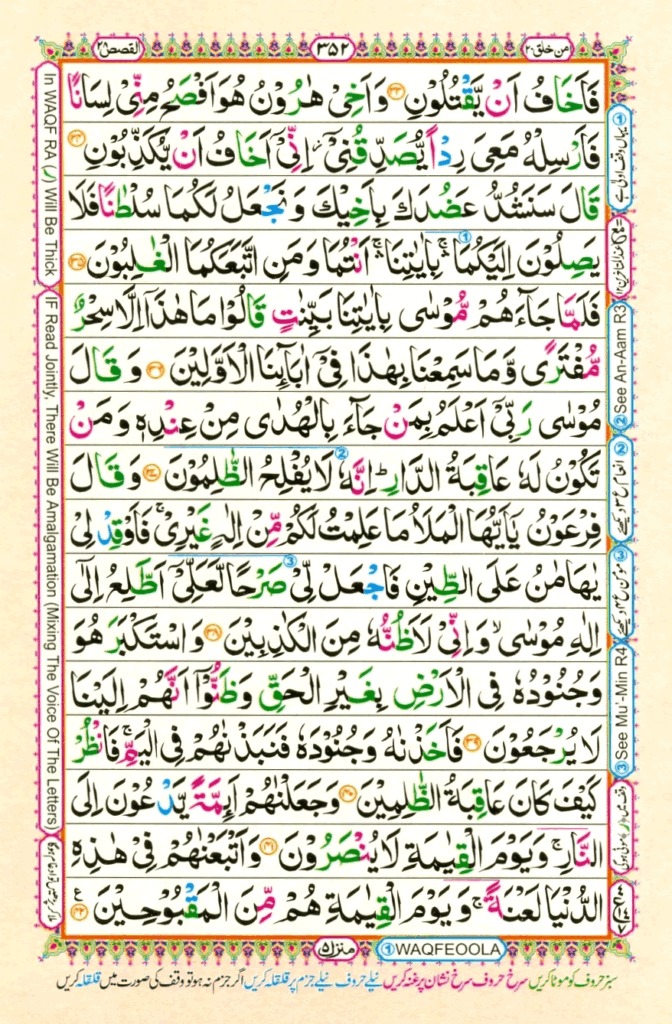 القصص ٢٨
٣٥٢
من خلق ٢٠
فَاَخَافُ اَنْ يَّقْتُلُوْنِ ﴿٣٣﴾ وَاَخِىْ هٰرُوْنُ هُوَ اَفْصَحُ مِنِّىْ لِسَانًا
فَاَرْسِلْهُ مَعِىَ رِدْاً يُّصَدِّقُنِىْۤ ز اِنِّىْۤ اَخَافُ اَنْ يُّكَذِّبُوْنِ ﴿٣٤﴾
قَالَ سَنَشُدُّ عَضُدَكَ بِاَخِيْكَ وَنَجْعَلُ لَكُمَا سُلْطٰنًا فَلَا
يَصِلُوْنَ اِلَيْكُمَا ۛۚ بِاٰيٰتِنَاۤ ۛۚ اَنْتُمَا وَمَنِ اتَّبَعَكُمَا الْغٰلِبُوْنَ ﴿٣٥﴾
فَلَمَّا جَآءَهُمْ مُّوْسٰى بِاٰيٰتِنَا بَيِّنٰتٍ قَالُوْا مَا هٰذَاۤ اِلَّا سِحْرٌ
مُّفْتَرًى وَّمَا سَمِعْنَا بِهٰذَا فِىْۤ اٰبَآئِنَا الْاَوَّلِيْنَ ﴿٣٦﴾ وَقَالَ
مُوْسٰى رَبِّىْۤ اَعْلَمُ بِمَنْ جَآءَ بِالْهُدٰى مِنْ عِنْدِهٖ وَمَنْ
تَكُوْنُ لَهٗ عَاقِبَةُ الدَّارِ ؕ اِنَّهٗ لَا يُفْلِحُ الظّٰلِمُوْنَ ﴿٣٧﴾ وَقَالَ
فِرْعَوْنُ يٰۤاَيُّهَا الْمَلَاُ مَا عَلِمْتُ لَكُمْ مِّنْ اِلٰهٍ غَيْرِىْ ۚ فَاَوْقِدْ لِىْ
يٰهَامٰنُ عَلَى الطِّيْنِ فَاجْعَلْ لِّىْ صَرْحًا لَّعَلِّىْۤ اَطَّلِعُ اِلٰٓى
اِلٰهِ مُوْسٰى ۙ وَاِنِّىْ لَاَظُنُّهٗ مِنَ الْكٰذِبِيْنَ ﴿٣٨﴾ وَاسْتَكْبَرَ هُوَ
وَجُنُوْدُهٗ فِى الْاَرْضِ بِغَيْرِ الْحَقِّ وَظَنُّوْۤا اَنَّهُمْ اِلَيْنَا
لَا يُرْجَعُوْنَ ﴿٣٩﴾ فَاَخَذْنٰهُ وَجُنُوْدَهٗ فَنَبَذْنٰهُمْ فِى الْيَمِّ ۚ فَانْظُرْ
كَيْفَ كَانَ عَاقِبَةُ الظّٰلِمِيْنَ ﴿٤٠﴾ وَجَعَلْنٰهُمْ اَئِمَّةً يَّدْعُوْنَ اِلَى
النَّارِ ۚ وَيَوْمَ الْقِيٰمَةِ لَا يُنْصَرُوْنَ ﴿٤١﴾ وَاَتْبَعْنٰهُمْ فِىْ هٰذِهِ
الدُّنْيَا لَعْنَةً ۚ وَيَوْمَ الْقِيٰمَةِ هُمْ مِّنَ الْمَقْبُوْحِيْنَ ﴿٤٢﴾ ع
In WAQF RA (ر) Will Be Thick
IF Read Jointly, There Will Be Amalgamation (Mixing The Voice Of The Letters)
① یہاں وقف اولیٰ ہے
② See An-Aam R3
③ See Mu'-Min R4
منزل ۵
① WAQFEOOLA
سبز حروف کو موٹا کریں سرخ حروف سرخ نشان پر غنہ کریں نیلے حروف نیلے جزم پر قلقلہ کریں اگر جزم نہ ہو تو وقف کی صورت میں قلقلہ کریں